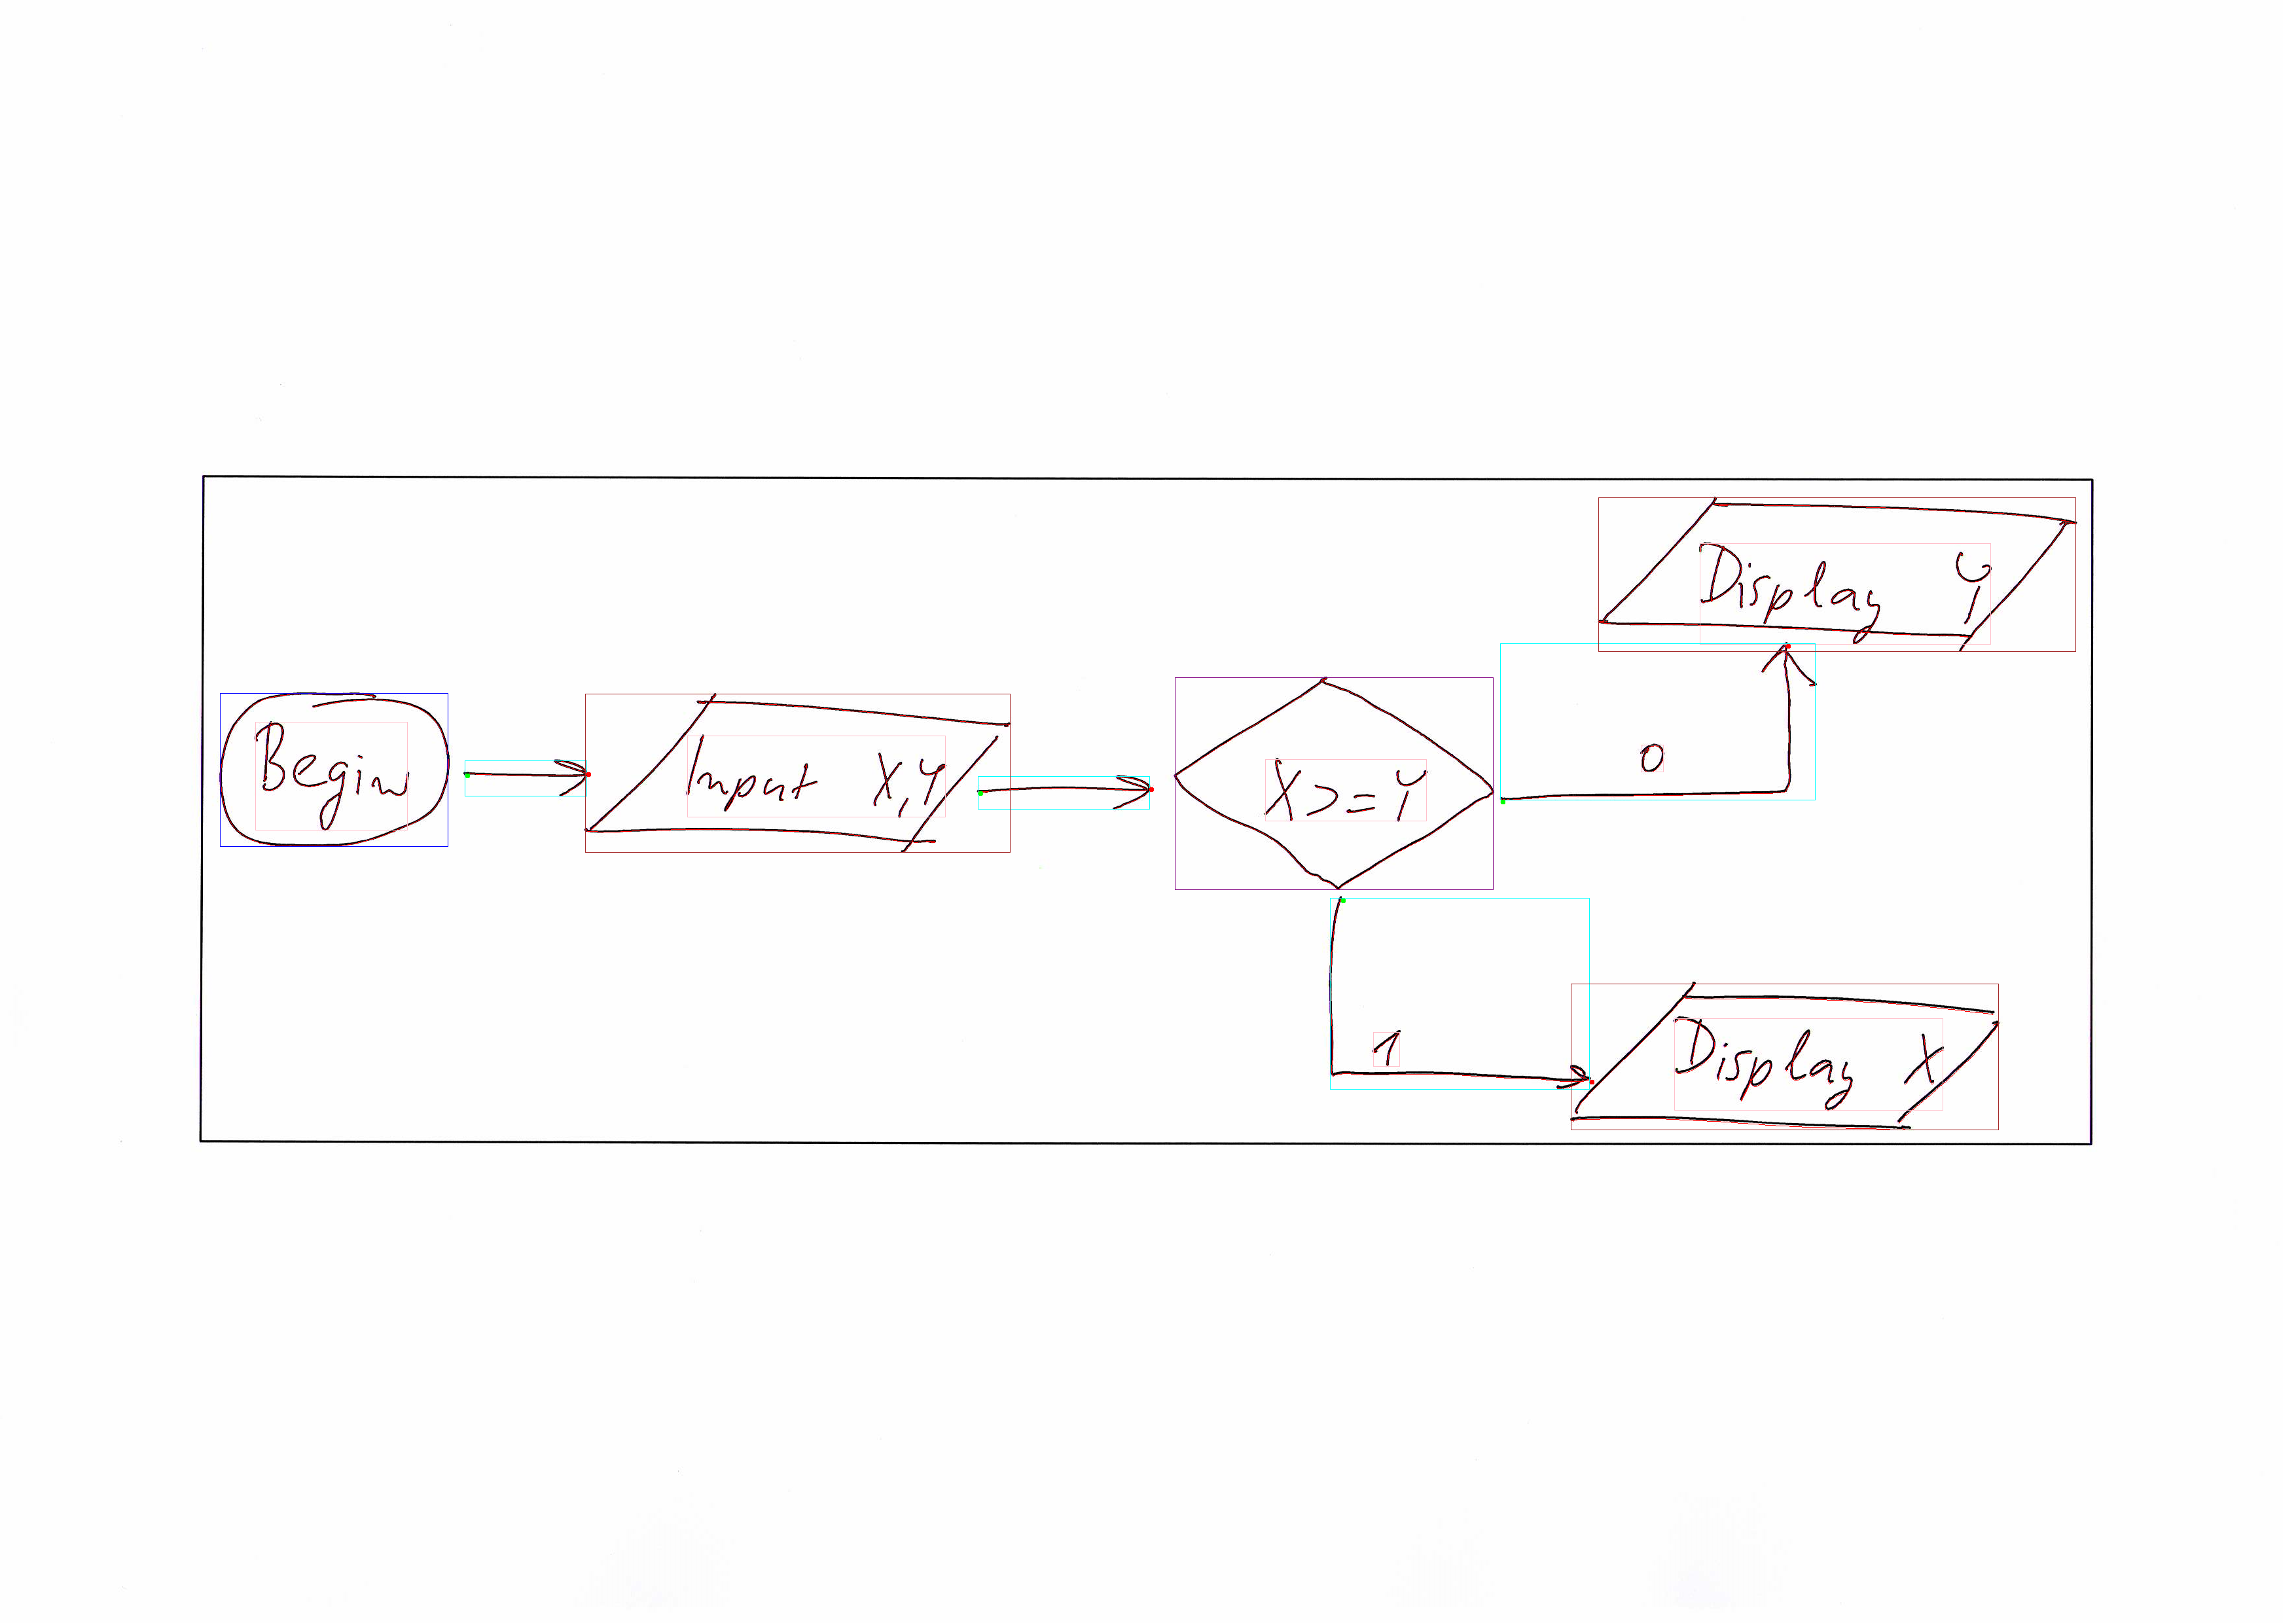 Begin
Input X,Y
X>=Y
0
Display Y
1
Display X